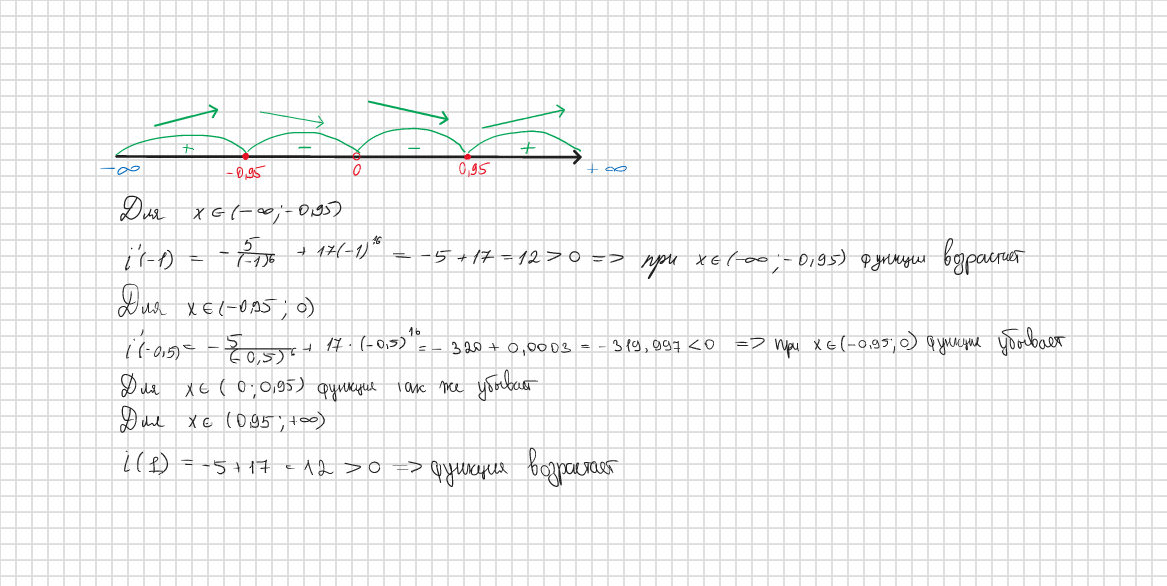 + − − +
−∞ -0,95 0 0,95 +∞
Для x∈(−∞;−0,95)
i'(−1) = −5/(−1)⁶ + 17(−1)¹⁶ = −5+17=12>0 => при x∈(−∞;−0,95) функция возрастает
Для x∈(−0,95; 0)
i'(−0,5)= −5/(−0,5)⁶ + 17·(−0,5)¹⁶ = −320+0,0003 = −319,997<0 => при x∈(−0,95;0) функция убывает
Для x∈(0;0,95) функция так же убывает
Для x∈(0,95;+∞)
i(1) =−5+17=12 >0 => функция возрастает